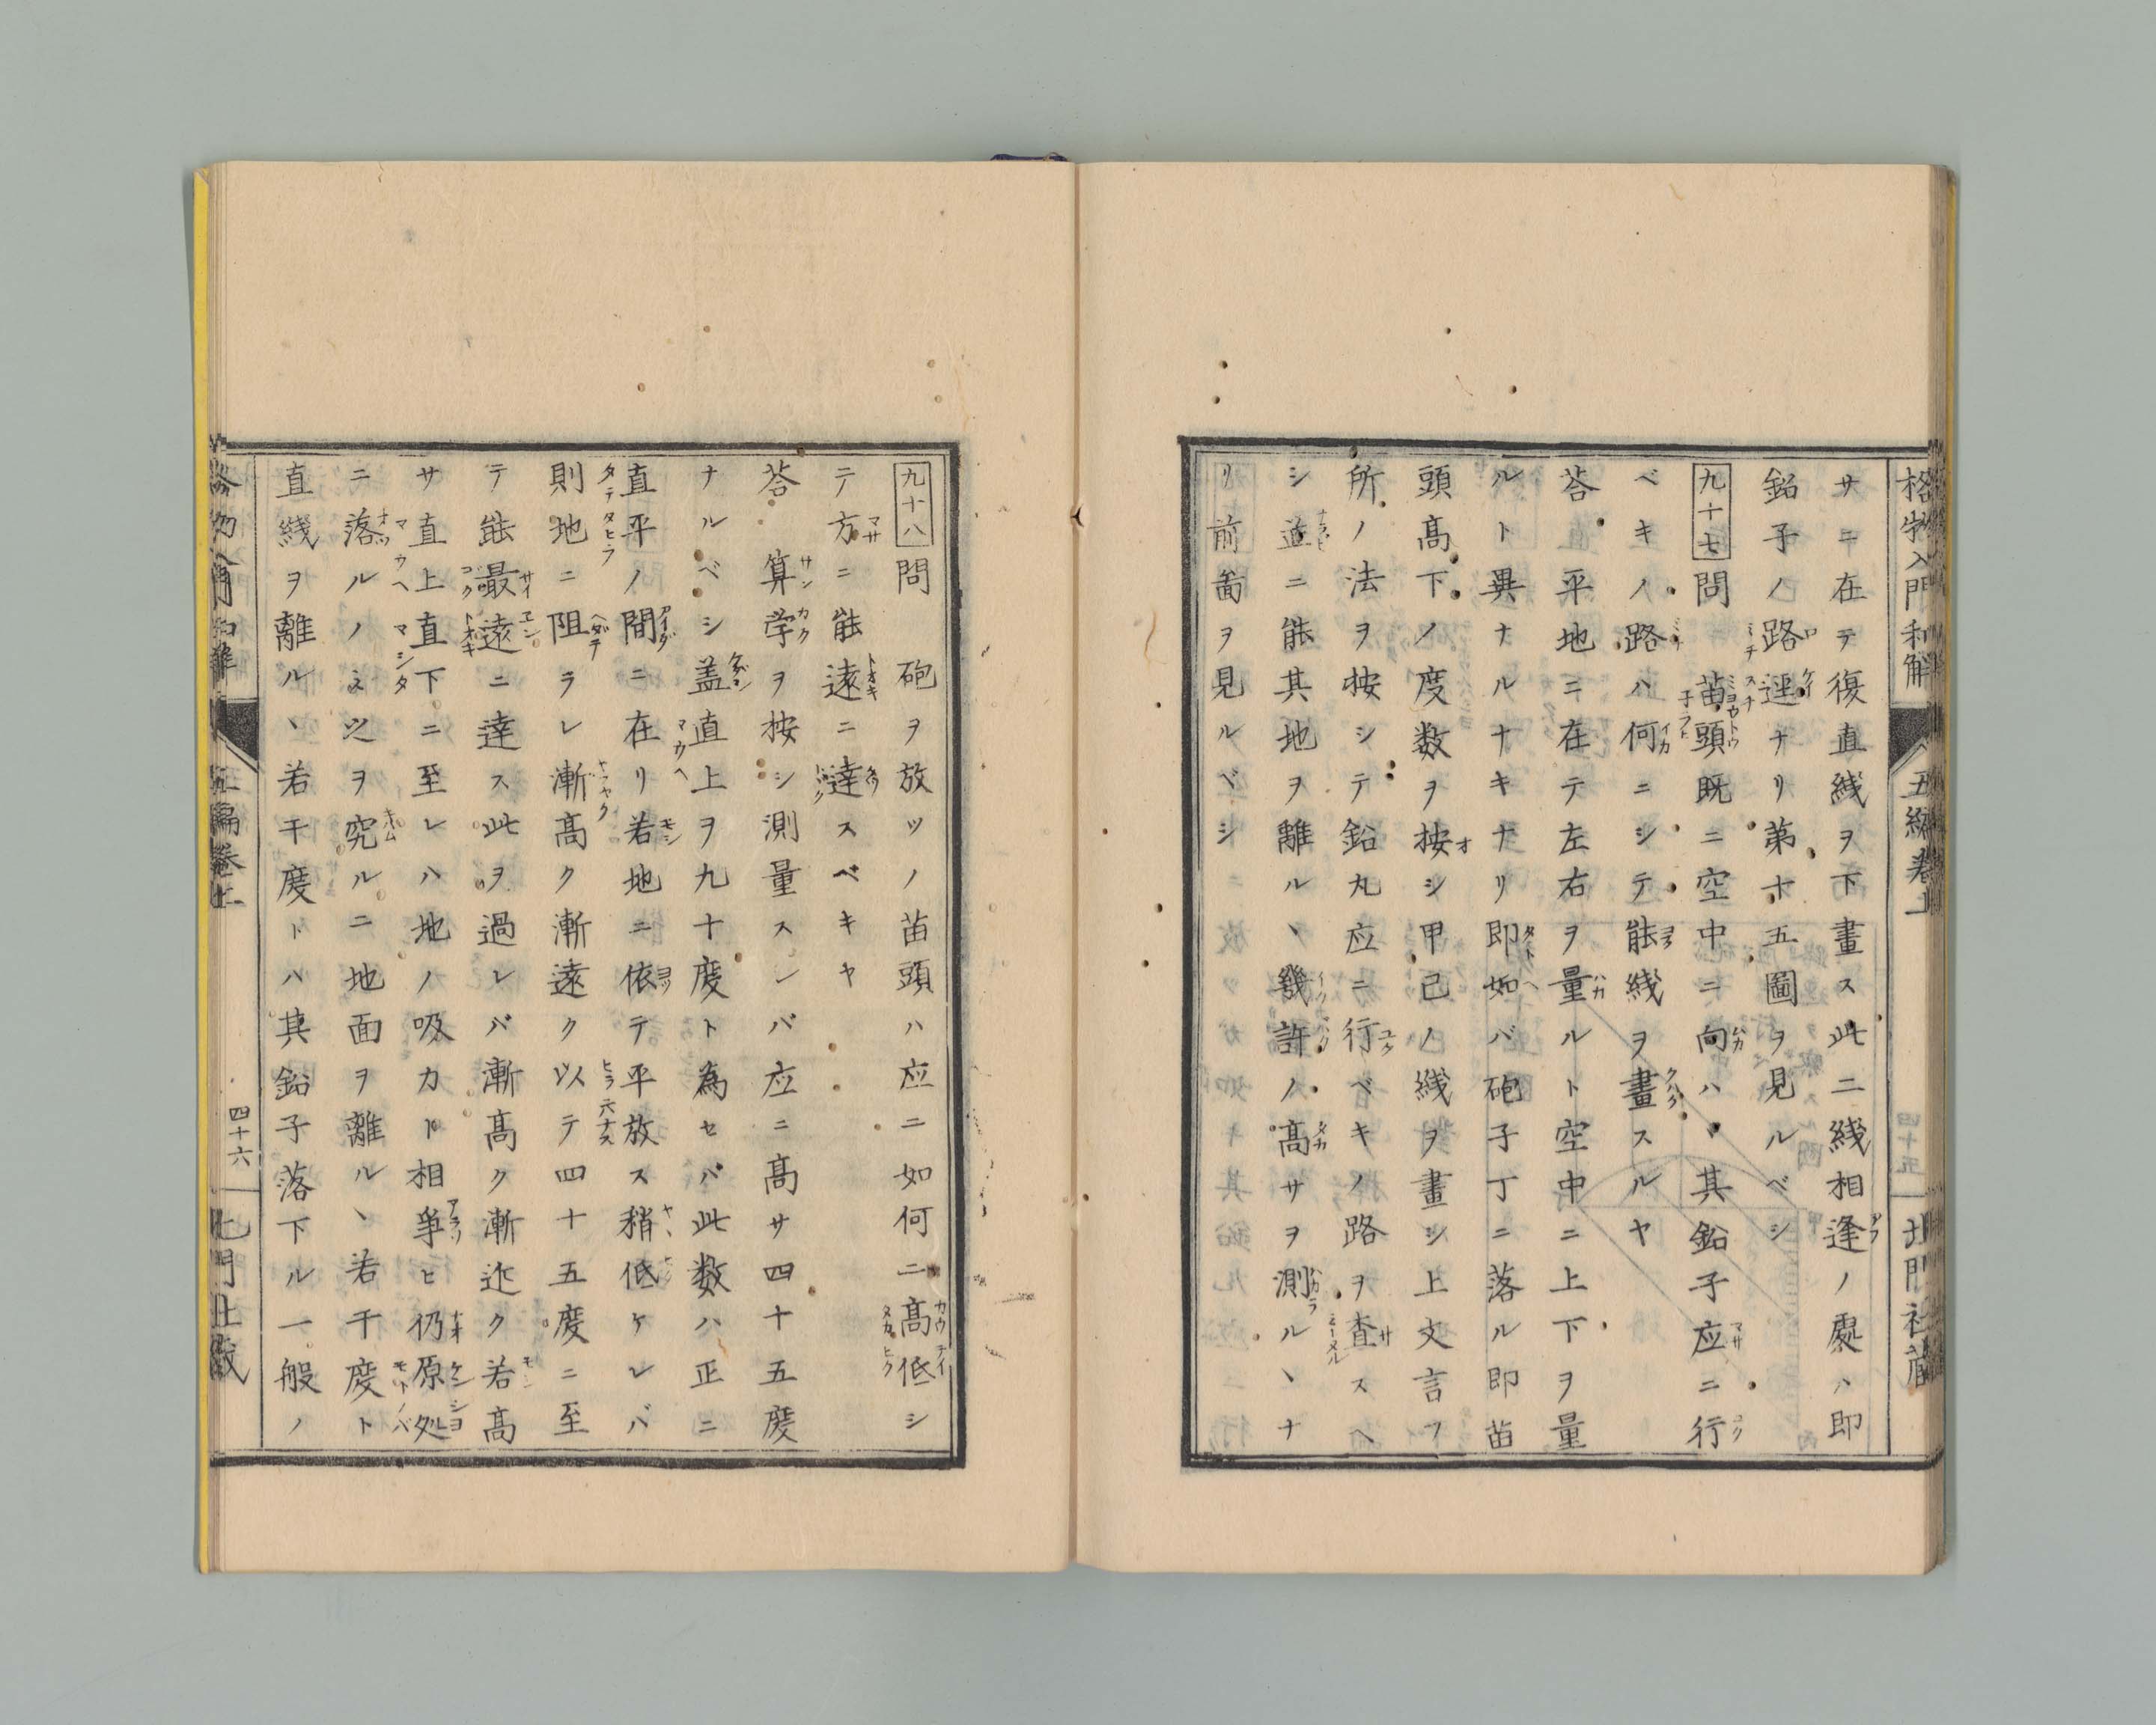 格物入門和解
五編巻上
北門社蔵
サニ在テ復直綫ヲ下畫ス此二綫相逢ノ處ハ即
鉛子ノ路逕ナリ第十五圖ヲ見ルベシ
九十七 問 苗頭既ニ空中ニ向ハヽ其鉛子应ニ行
ベキノ路ハ何ニシテ能綫ヲ畫スルヤ
荅 平地ニ在テ左右ヲ量ルト空中ニ上下ヲ量
ルト異ナルナキナリ即如バ砲子丁ニ落ル即苗
頭髙下ノ度数ヲ按シ甲己ノ綫ヲ畫シ上文言フ
所ノ法ヲ按シテ鉛丸应ニ行ベキノ路ヲ査スヘ
シ並ニ能其地ヲ離ルヽ幾許ノ髙サヲ測ルヽナ
リ前面ヲ見ルベシ
九十八 問 砲ヲ放ツノ苗頭ハ应ニ如何ニ髙低シ
テ方ニ能遠ニ達スベキヤ
荅 算学ヲ按シ測量スレバ应ニ髙サ四十五度
ナルベシ盖直上ヲ九十度ト為セバ此数ハ正ニ
直平ノ間ニ在リ若地ニ依テ平放ス稍低ケレバ
則地ニ阻ラレ漸髙ク漸遠ク以テ四十五度ニ至
テ能最遠ニ達ス此ヲ過レバ漸髙ク漸近ク若髙
サ直上直下ニ至レハ地ノ吸力ト相爭ヒ仍原処
ニ落ルノミ之ヲ究ルニ地面ヲ離ルヽ若干度ト
直綫ヲ離ルヽ若干度トハ其鉛子落下ル一般ノ
四十六